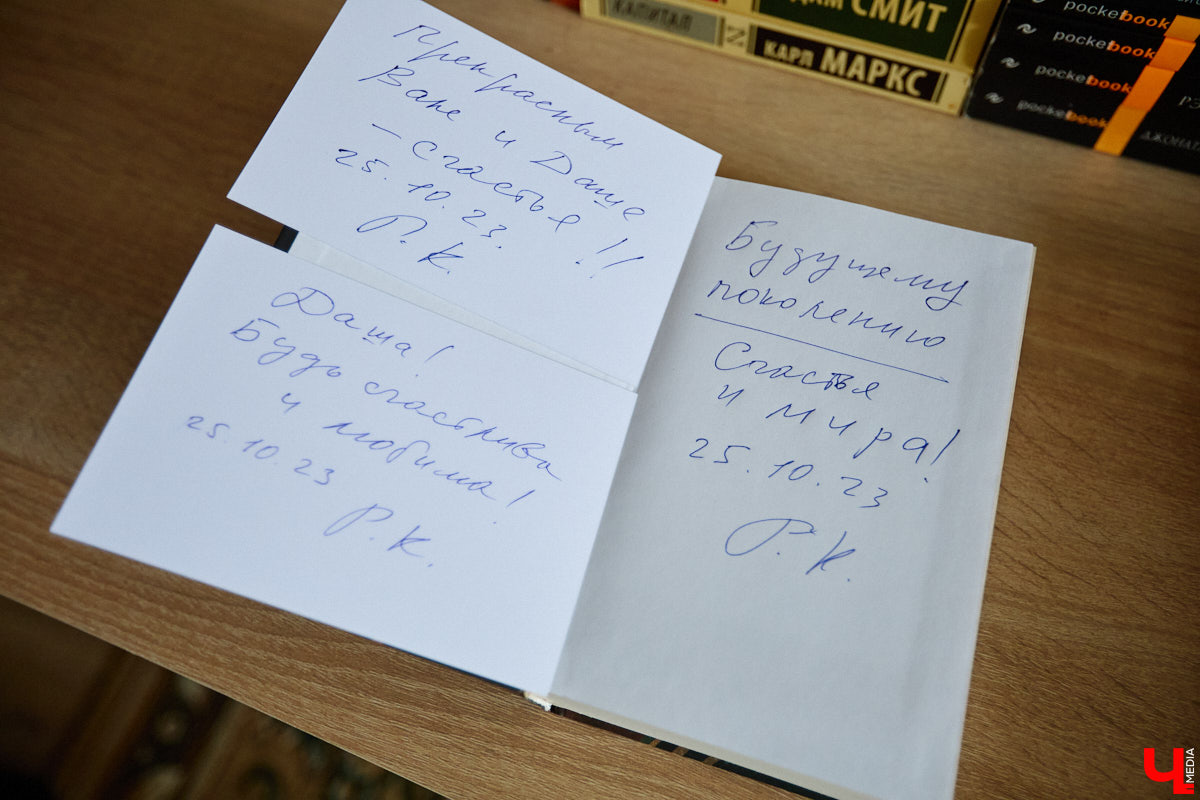 Прекрасным
Ване и Даше
– счастья!!
25.10.23.
Р.К.
Даша!
Будь счастлива
и любима!
25.10.23
Р.К.
Будущему
поколению
Счастья
и мира!
25.10.23
Р.К.
КАПИТАЛ
СМИТ
КАРЛ МАРКС
pocketbook
pocketbook
pocketbook
pocketbook
ДЖОНАТ
Ч MEDIA